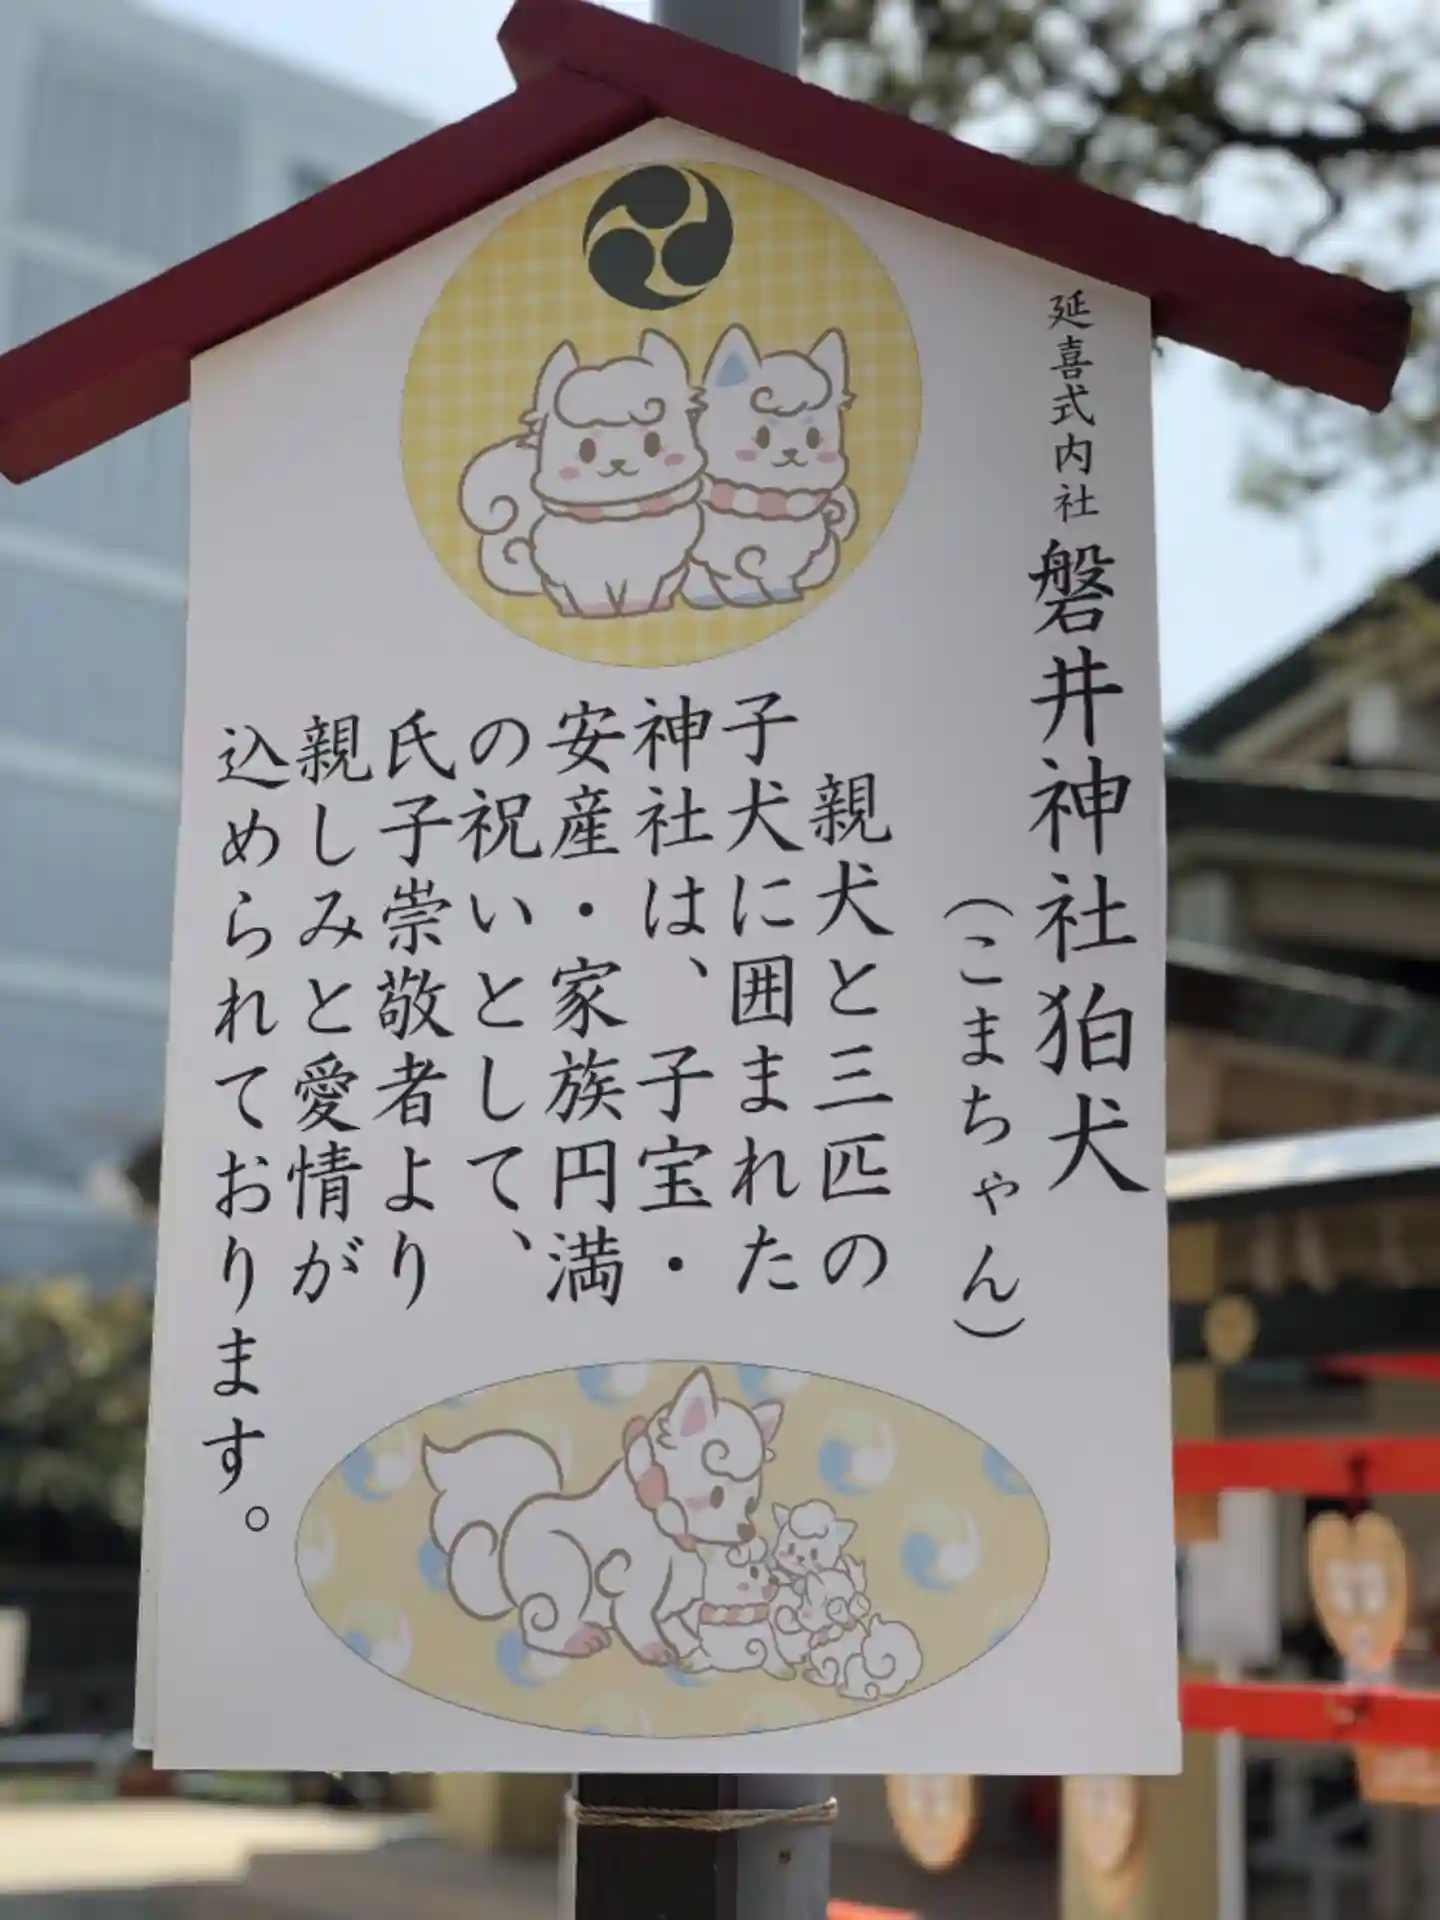 延喜式内社 磐井神社狛犬
（こまちゃん）
親犬と三匹の
子犬に囲まれた
神社は、子宝・
安産・家族円満
の祝いとして、
氏子崇敬者より
親しみと愛情が
込められております。